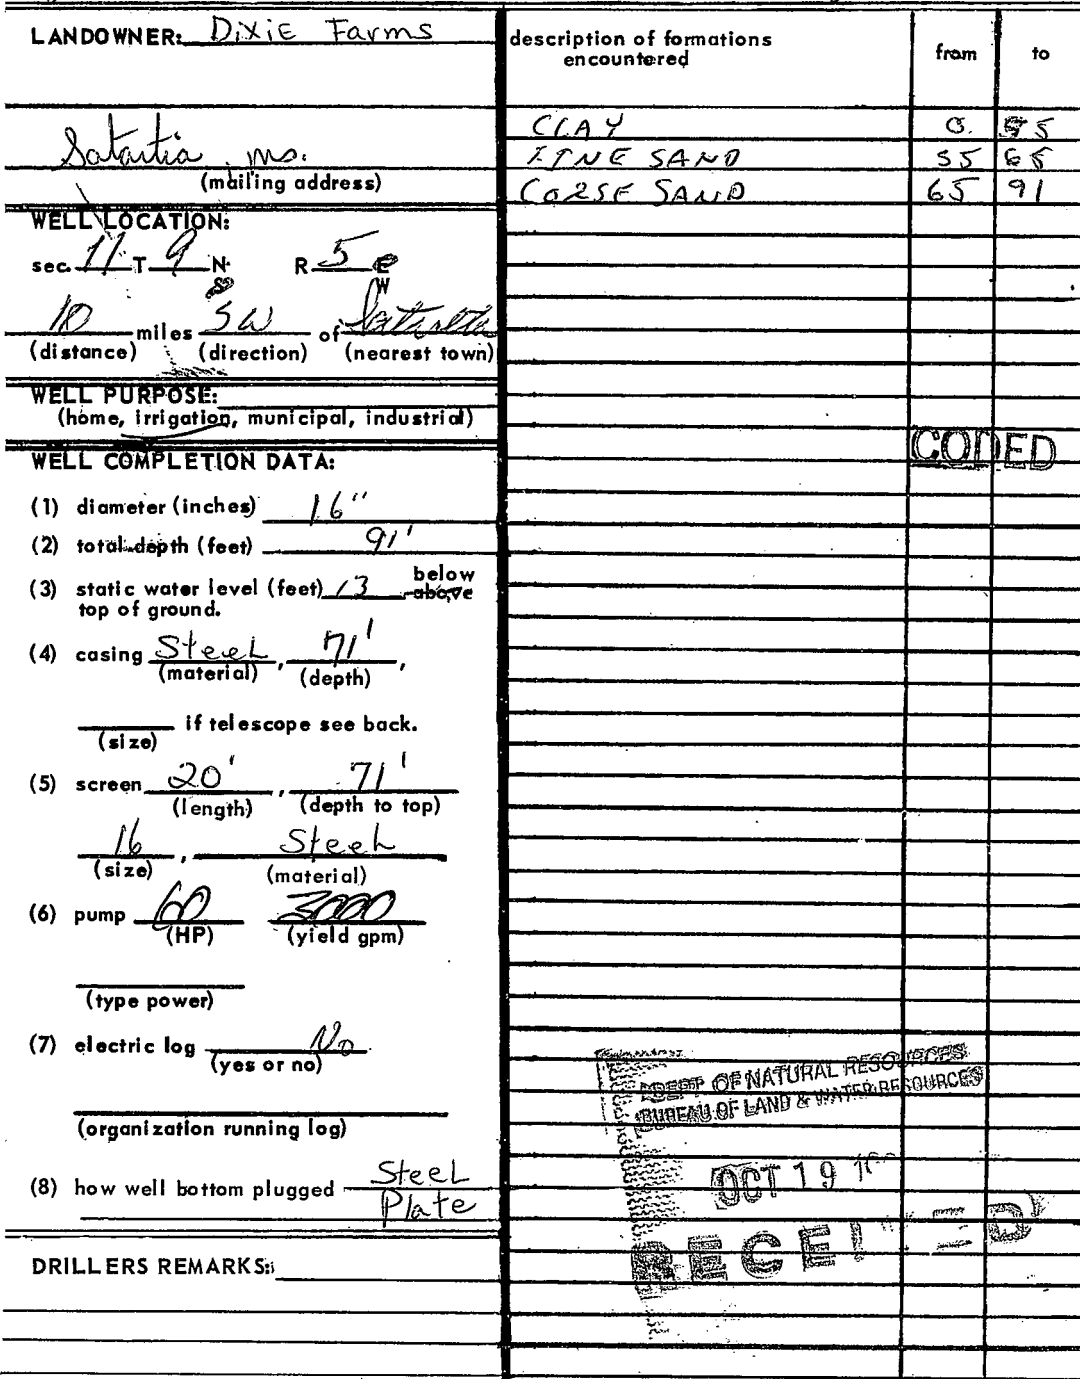 LANDOWNER: Dixie Farms
Satartia, ms.
(mailing address)
WELL LOCATION:
sec. 11 T 9 N R 5 E
S W
10 miles SW of Satartia
(distance) (direction) (nearest town)
WELL PURPOSE:
(home, irrigation, municipal, industrial)
WELL COMPLETION DATA:
(1) diameter (inches) 16"
(2) total depth (feet) 91'
(3) static water level (feet) 13 below above
top of ground.
(4) casing Steel, 71',
(material) (depth)
if telescope see back.
(size)
(5) screen 20', 71'
(length) (depth to top)
16, Steel
(size) (material)
(6) pump 60 3000
(HP) (yield gpm)
(type power)
(7) electric log No
(yes or no)
(organization running log)
(8) how well bottom plugged Steel
Plate
DRILLERS REMARKS:
description of formations from to
encountered
CLAY 0. 55
FINE SAND 55 65
CORSE SAND 65 91
CODED
DEPT OF NATURAL RESOURCES
BUREAU OF LAND & WATER RESOURCES
OCT 19
RECEIVED